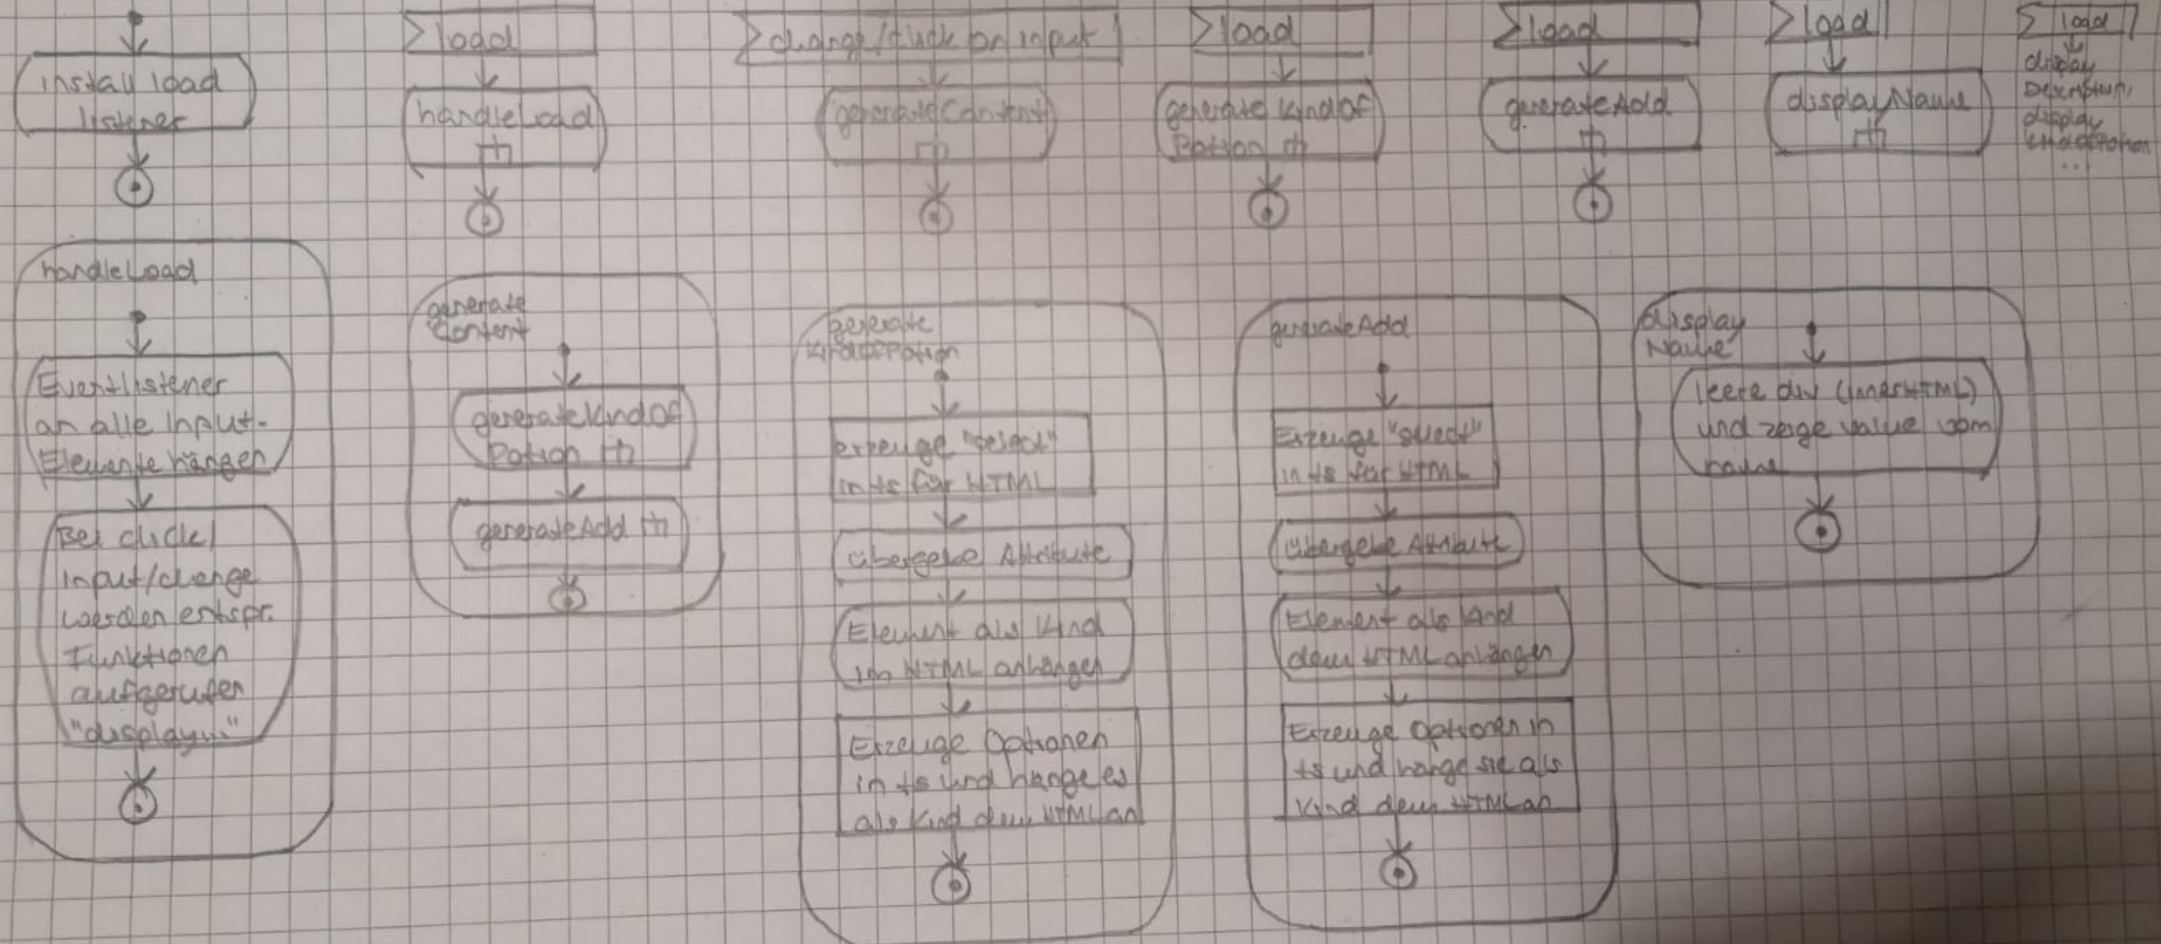 install load
listener
load
handleLoad
change/click on input
generateContent
load
generate KindOf
Potion
load
generateAdd
load
displayName
load
display
Description,
display
KindOfPotion
...
handleLoad
Eventlistener
an alle Input-
Elemente hängen
Bei click/
input/change
werden entspr.
Funktionen
aufgerufen
"display..."
generate
Content
generateKindOf
Potion
generateAdd
generate
KindOfPotion
erzeuge "select"
in ts für HTML
übergebe Attribute
Element als Kind
im HTML anhängen
Erzeuge Optionen
in ts und hänge es
als Kind dem HTML an
generateAdd
Erzeuge "select"
in ts für HTML
übergebe Attribute
Element als Kind
dem HTML anhängen
Erzeuge Optionen in
ts und hänge sie als
Kind dem HTML an
display
Name
leere div (innerHTML)
und zeige value vom
name